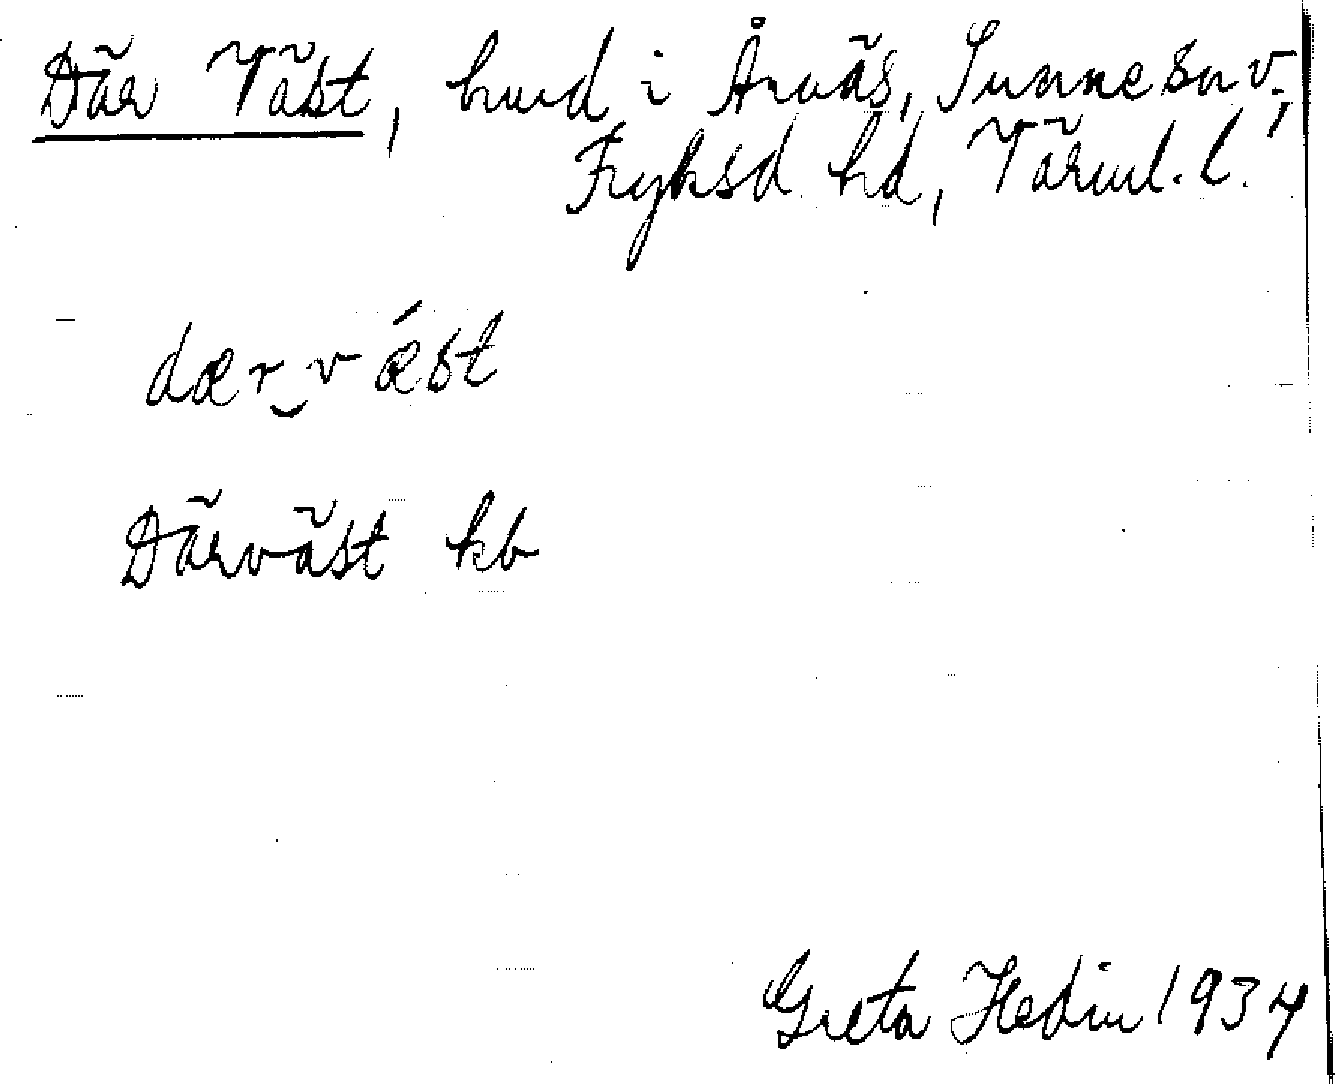 Där Väst, hmd i Årnäs, Sunne sn v;
Fryksd hd, Värml. l.
dær‿v ǽst
Därväst kb
Greta Hedin 1934